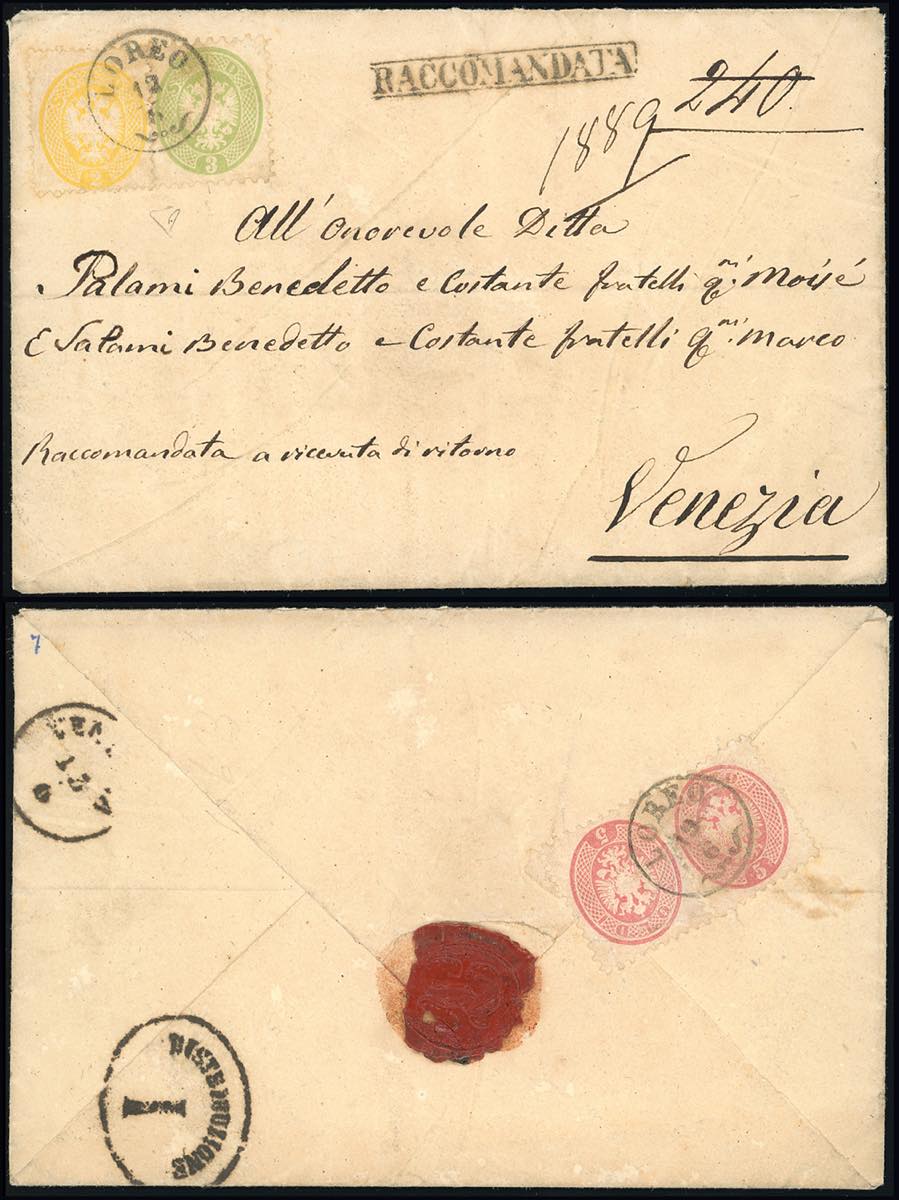 LOREO
12
6
2
3
RACCOMANDATA
240.
1889
All' Onorevole Ditta
Palami Benedetto e Costante fratelli qm! Moisé
E Salami Benedetto e Costante fratelli qm! Marco
Raccomandata a ricevuta di ritorno
Venezia
7
VENE
13
6
LOREO
12
6
5
5
DISTRIBUZIONE
I